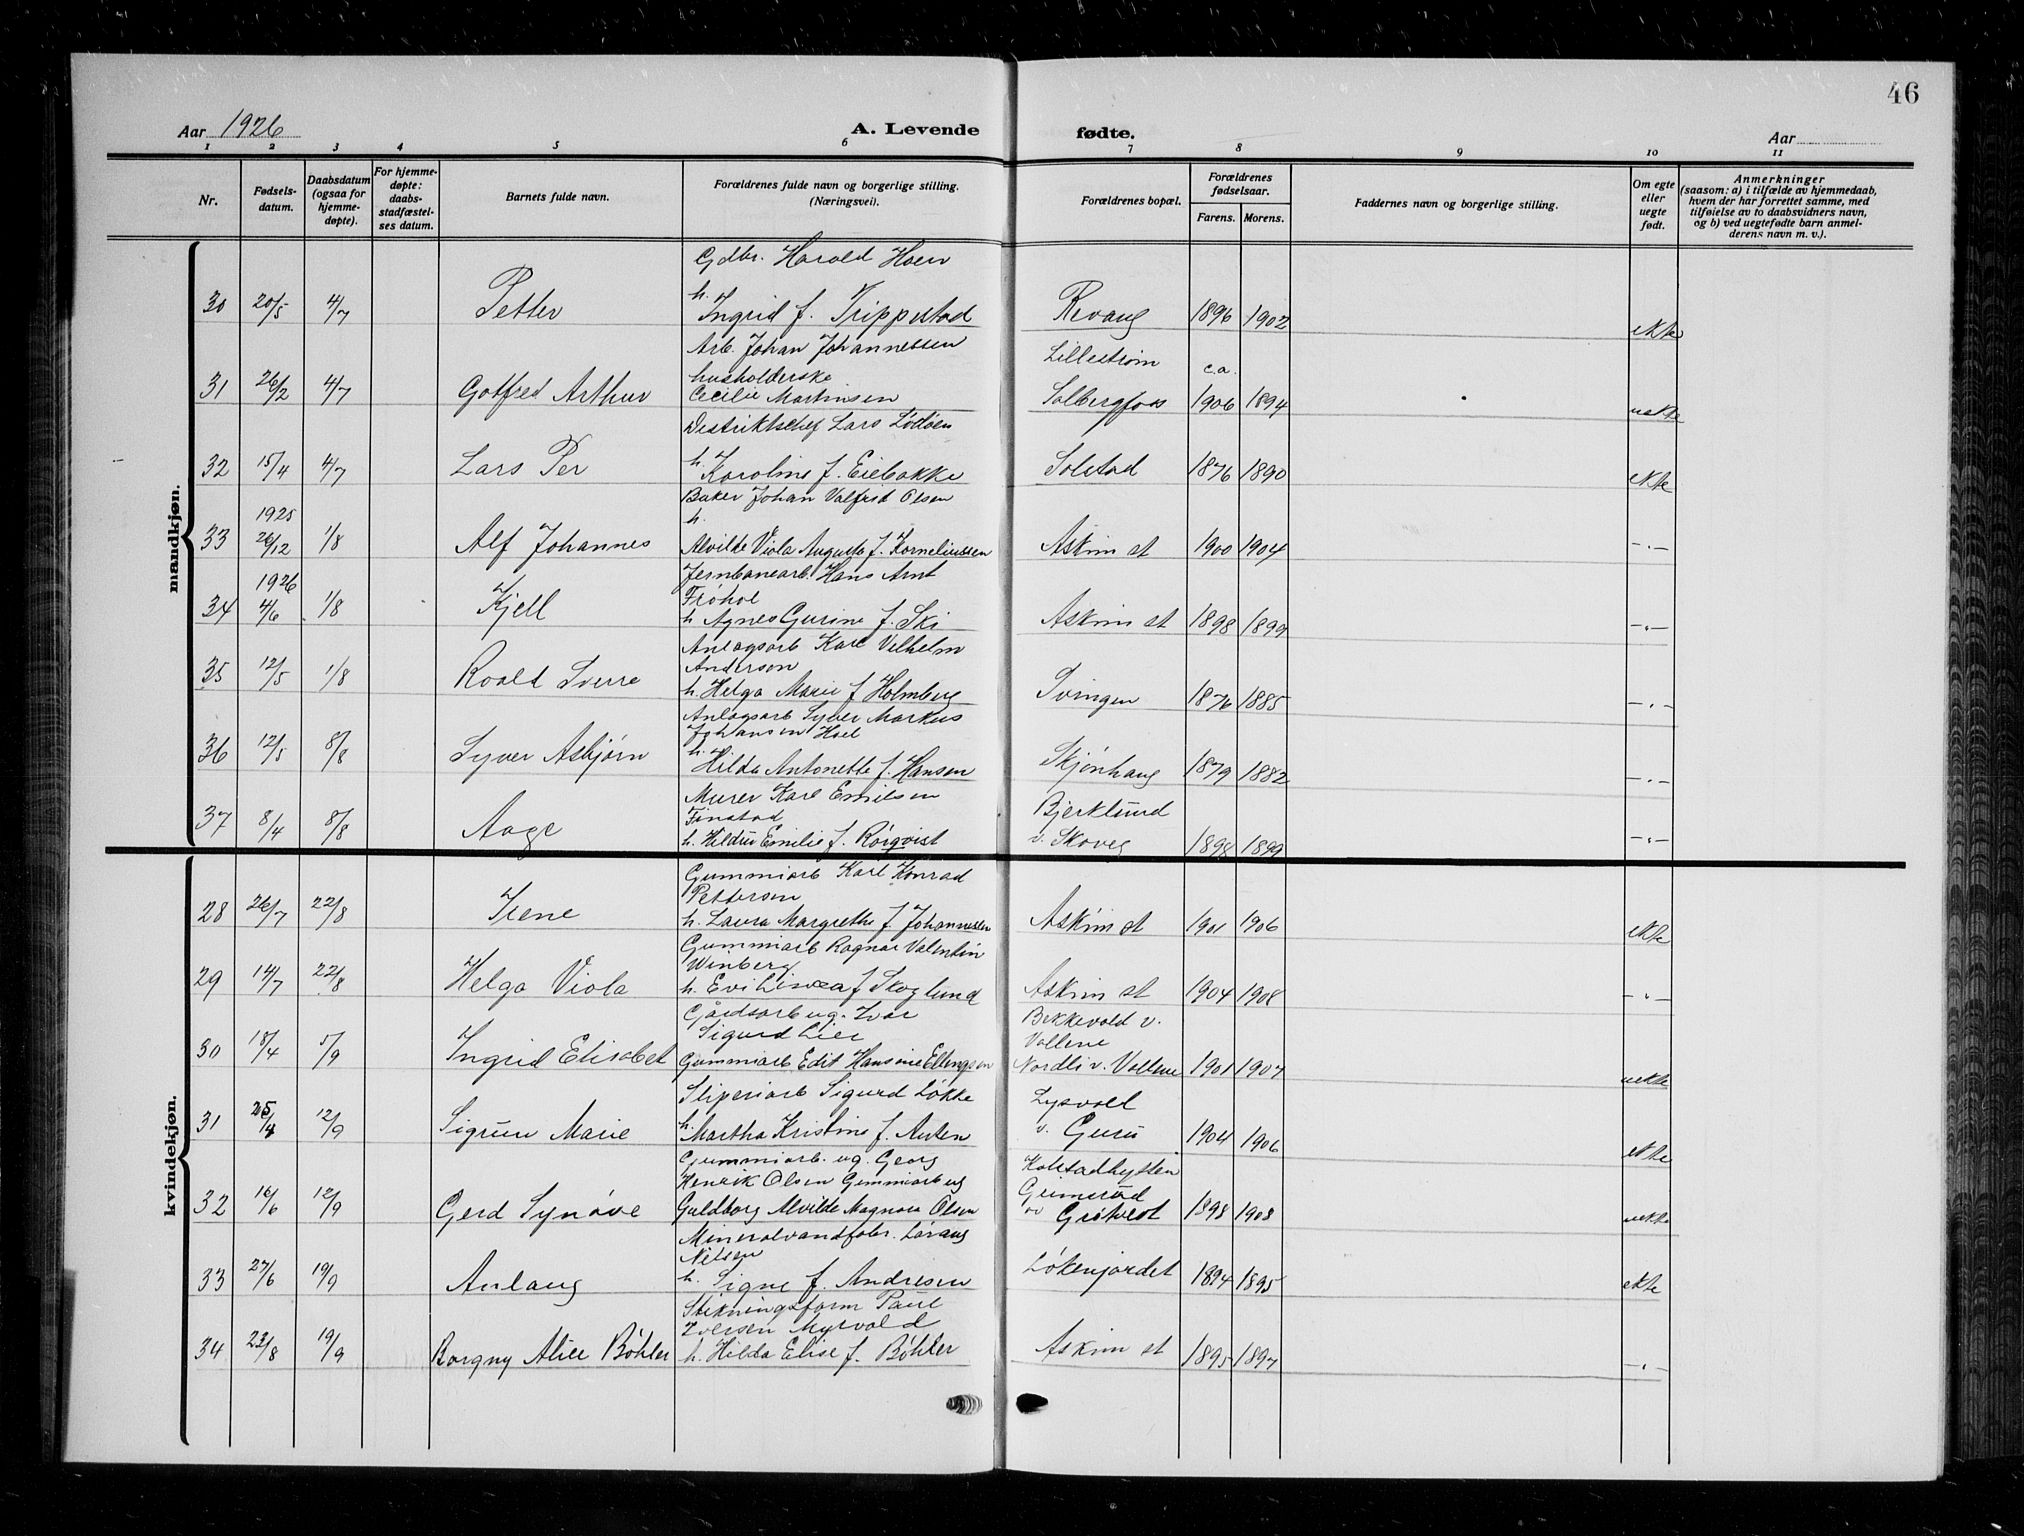 46
Aar 1926
A. Levende fødte.
Aar
1 2 3 4 5 6 7 8 9 10 11
Nr.
Fødsels-
datum.
Daabsdatum
(ogsaa for
hjemme-
døpte).
For hjemme-
døpte:
daabs-
stadfæstel-
ses datum.
Barnets fulde navn.
Forældrenes fulde navn og borgerlige stilling.
(Næringsvei).
Forældrenes bopæl.
Forældrenes
fødselsaar.
Farens. Morens.
Faddernes navn og borgerlige stilling.
Om egte
eller
uegte
født.
Anmerkninger
(saasom: a) i tilfælde av hjemmedaab,
hvem der har forrettet samme, med
tilføielse av to daabsvidners navn,
og b) ved uegtefødte barn anmel-
derens navn m. v.).
mandkjøn.
Gdbr. Harald Hoen
h.
30 20/5 4/7 Petter Ingrid f. Trippestad Revaug 1896 1902 ekte
Arb. Johan Johannessen Lillestrøm
husholderske c.a.
31 26/2 4/7 Gotfred Arthur Cecilie Martinsen Solbergfoss 1906 1894 uekte
Distriktschef Lars Lødøen
h.
32 15/4 4/7 Lars Per Karoline f. Eiebakke Solstad 1876 1890 ekte
Baker Johan Valfrid Olsen
1925 h.
33 26/12 1/8 Alf Johannes Alvilde Viola Augusta f. Korneliussen Askim st 1900 1904 -"-
1926 Jernbanearb. Hans Arnt
Frøhol
34 4/6 1/8 Kjell h Agnes Gurine f. Ski Askim st 1898 1899 -"-
Anlagsarb Karl Vilhelm
Anderson
35 12/5 1/8 Roald Sverre h. Helga Marie f Holmberg Tvingen 1876 1885 -"-
Anlagsarb Syver Markus
Johansen Hoel
h.
36 12/5 8/8 Syver Asbjørn Hilda Antonette f. Hansen Skjønhaug 1879 1882 -"-
Murer Karl Emilsen Bjerklund
Finstad
37 8/4 8/8 Aage h. Hildur Emilie f. Rørqvist v. Skoveg 1898 1899 -"-
kvindekjøn.
Gummiarb Karl Konrad
Pettersen
28 26/7 22/8 Irene h. Laura Margrethe f. Johannessen Askim st 1901 1906 ekte
Gummiarb Ragnar Valentin
Winberg
29 14/7 22/8 Helga Viola h. Evi Lisvea f Skoglund Askim st 1904 1908 -"-
Gårdsarb ug. Ivar Bekkevold v.
Sigurd Lier Vallene
30 18/4 5/9 Ingrid Elisabet Gummiarb Edit Hansine Ellingsen Nordli v. Vallene 1901 1907 uekte
Sliperiarb Sigurd Løkke Lysvold
h.
31 25/4 12/9 Sigrun Marie Martha Kristine f. Anten v. Guru 1904 1906 ekte
Gummiarb. ug. Georg Kolstadhytten
Henrik Olsen Gummiarb ug Grimsrud
32 16/6 12/9 Gerd Synøve Guldborg Alvilde Magnora Olsen v Grøtvedt 1898 1908 uekte
Mineralvandfabr. Laraug
Nilsen
33 27/6 19/9 Anlaug h. Signe f. Andresen Løkenjordet 1894 1895 ekte
Stikningsform Paul
Iversen Myrvold
34 23/8 19/9 Borgny Alice Bøhler h. Hilda Elise f. Bøhler Askim st 1895 1897 -"-